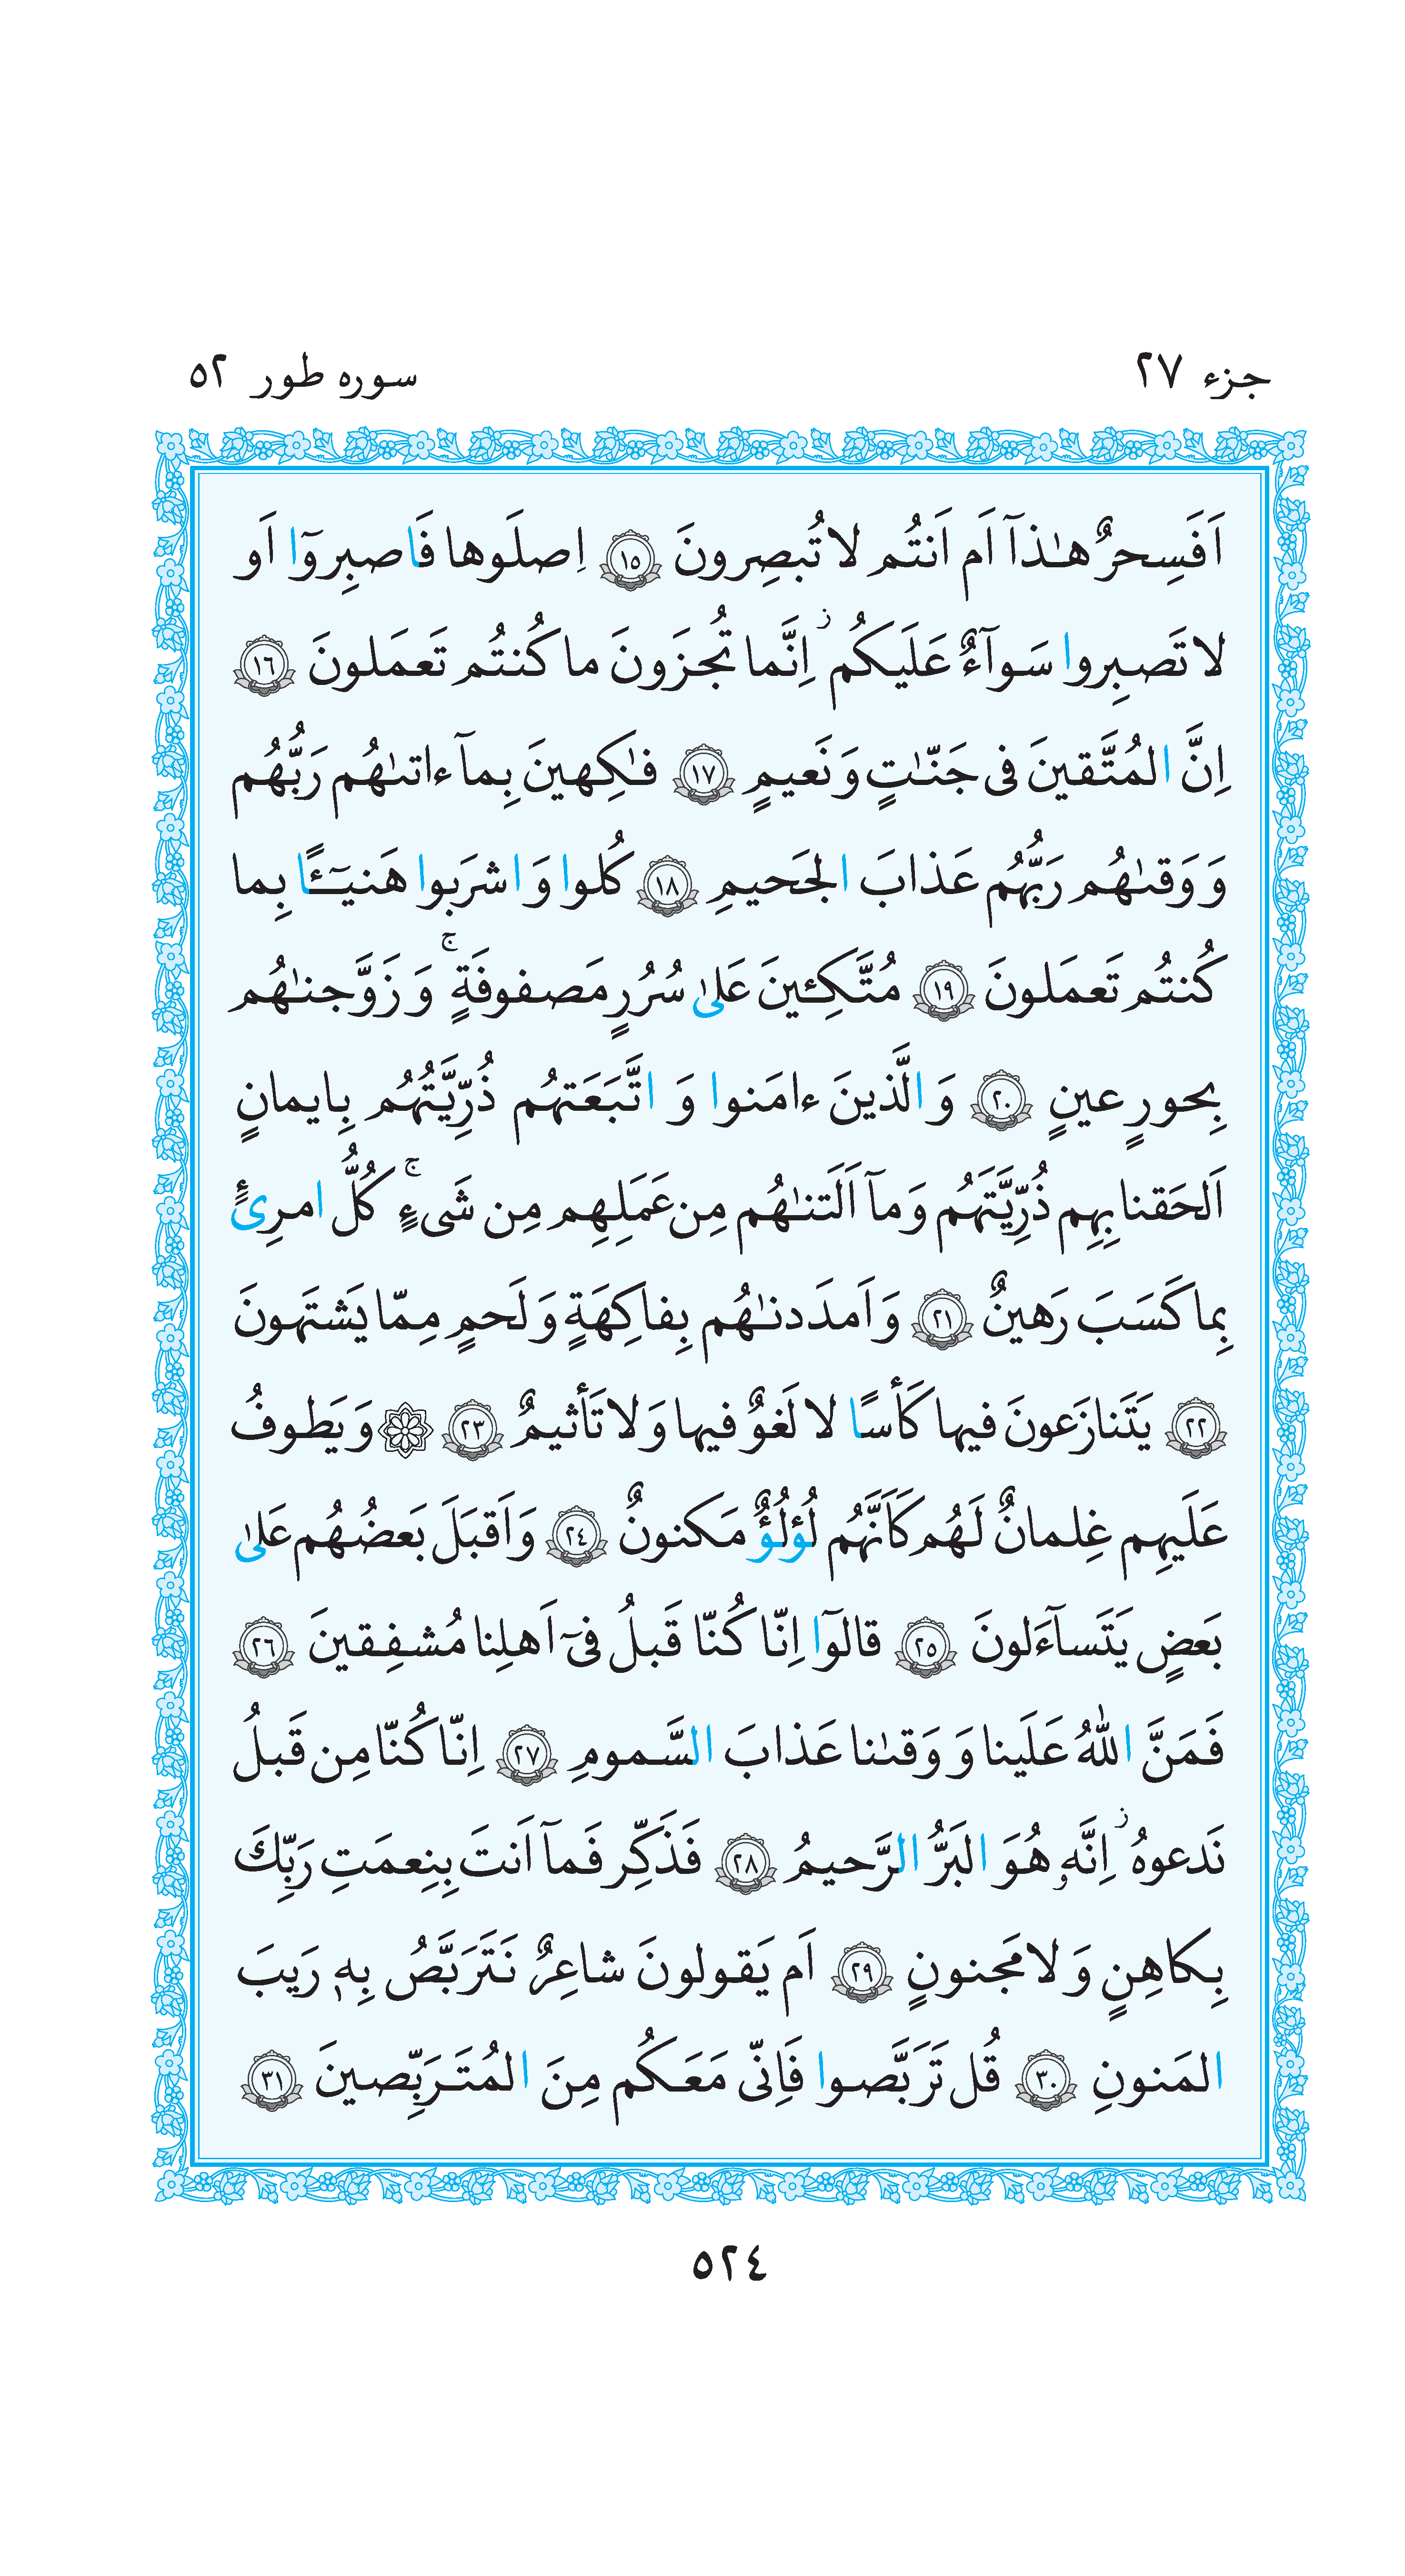 جزء ٢٧
سوره طور ٥٢
اَفَسِحرٌ هـٰذَآ اَم اَنتُم لا تُبصِرونَ ﴿١٥﴾ اِصلَوها فَاصبِروٓا اَو
لا تَصبِروا سَوآءٌ عَلَيكُم ۖ اِنَّما تُجزَونَ ما كُنتُم تَعمَلونَ ﴿١٦﴾
اِنَّ المُتَّقينَ فى جَنّـٰتٍ وَ نَعيمٍ ﴿١٧﴾ فـٰكِهينَ بِمآ ءاتىٰهُم رَبُّهُم
وَ وَقىٰهُم رَبُّهُم عَذابَ الجَحيمِ ﴿١٨﴾ كُلوا وَ اشرَبوا هَنيٓـًٔا بِما
كُنتُم تَعمَلونَ ﴿١٩﴾ مُتَّكِـئينَ عَلىٰ سُرُرٍ مَصفوفَةٍ ۚ وَ زَوَّجنـٰهُم
بِحورٍ عينٍ ﴿٢٠﴾ وَ الَّذينَ ءامَنوا وَ اتَّبَعَتهُم ذُرِّيَّتُهُم بِايمانٍ
اَلحَقنا بِهِم ذُرِّيَّتَهُم وَ مآ اَلَتنـٰهُم مِن عَمَلِهِم مِن شَىءٍ ۚ كُلُّ امرِئٍ
بِما كَسَبَ رَهينٌ ﴿٢١﴾ وَ اَمدَدنـٰهُم بِفاكِهَةٍ وَ لَحمٍ مِمّا يَشتَهونَ
﴿٢٢﴾ يَتَنازَعونَ فيها كَأسًا لا لَغوٌ فيها وَ لا تَأثيمٌ ﴿٢٣﴾ ۞ وَ يَطوفُ
عَلَيهِم غِلمانٌ لَهُم كَاَنَّهُم لُؤلُؤٌ مَكنونٌ ﴿٢٤﴾ وَ اَقبَلَ بَعضُهُم عَلىٰ
بَعضٍ يَتَسآءَلونَ ﴿٢٥﴾ قالوٓا اِنّا كُنّا قَبلُ فىٓ اَهلِنا مُشفِقينَ ﴿٢٦﴾
فَمَنَّ اللّٰهُ عَلَينا وَ وَقىٰنا عَذابَ السَّمومِ ﴿٢٧﴾ اِنّا كُنّا مِن قَبلُ
نَدعوهُ ۖ اِنَّهۥ هُوَ البَرُّ الرَّحيمُ ﴿٢٨﴾ فَذَكِّر فَمآ اَنتَ بِنِعمَتِ رَبِّكَ
بِكاهِنٍ وَ لا مَجنونٍ ﴿٢٩﴾ اَم يَقولونَ شاعِرٌ نَتَرَبَّصُ بِهٖ رَيبَ
المَنونِ ﴿٣٠﴾ قُل تَرَبَّصوا فَاِنّى مَعَكُم مِنَ المُتَرَبِّصينَ ﴿٣١﴾
٥٢٤